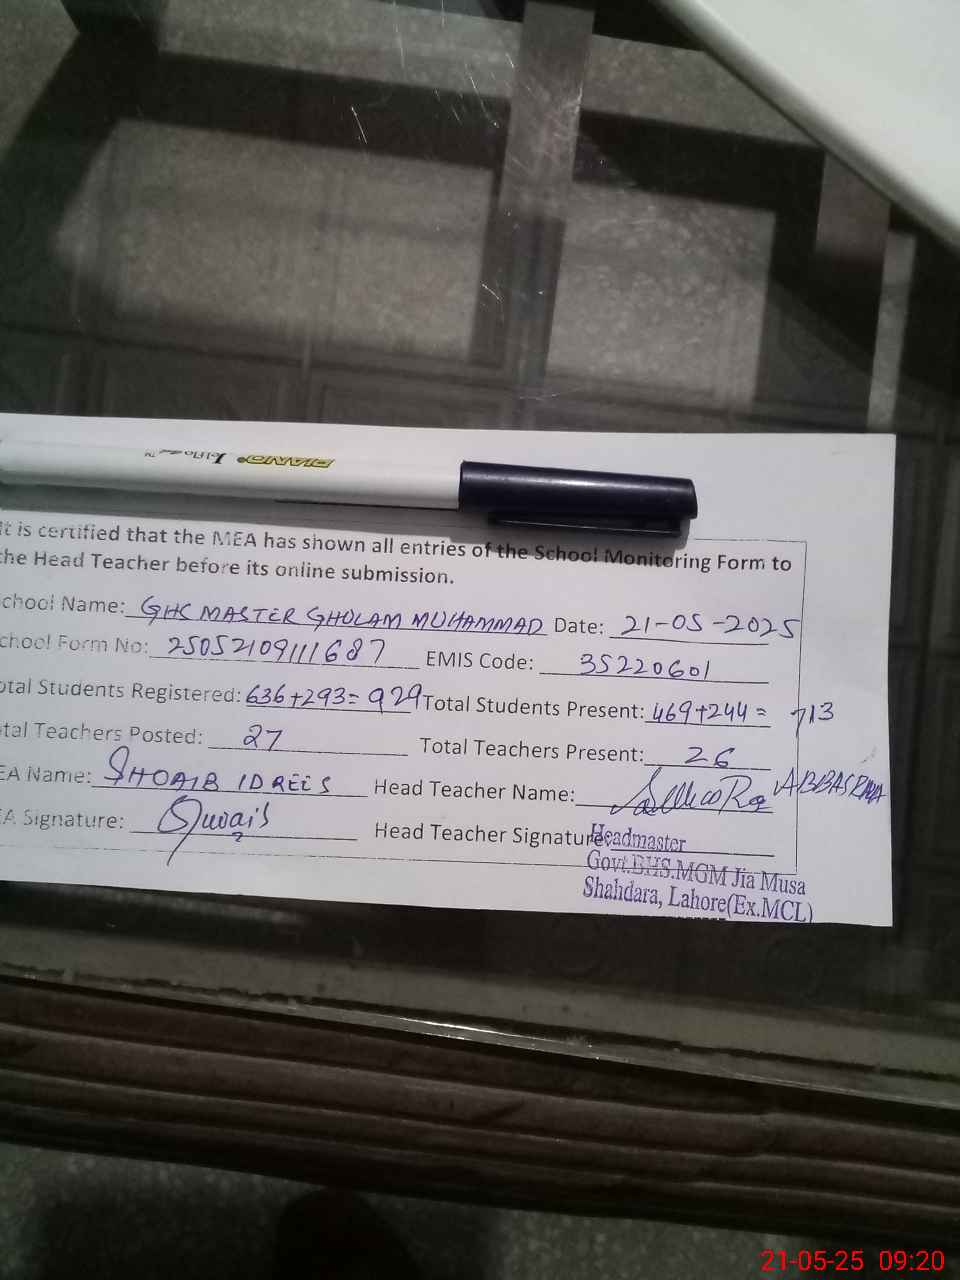 PIANO® JetFlo ™
It is certified that the MEA has shown all entries of the School Monitoring Form to
the Head Teacher before its online submission.
chool Name: GHS MASTER GHULAM MUHAMMAD Date: 21-05-2025
chool Form No: 2505210911687 EMIS Code: 35220601
otal Students Registered: 636+293=929 Total Students Present: 469+244= 713
tal Teachers Posted: 27 Total Teachers Present: 26
EA Name: SHOAIB IDREES Head Teacher Name: ABBAS
EA Signature: Head Teacher Signature:
Headmaster
Govt.BHS.MGM Jia Musa
Shahdara, Lahore(Ex.MCL)
21-05-25 09:20